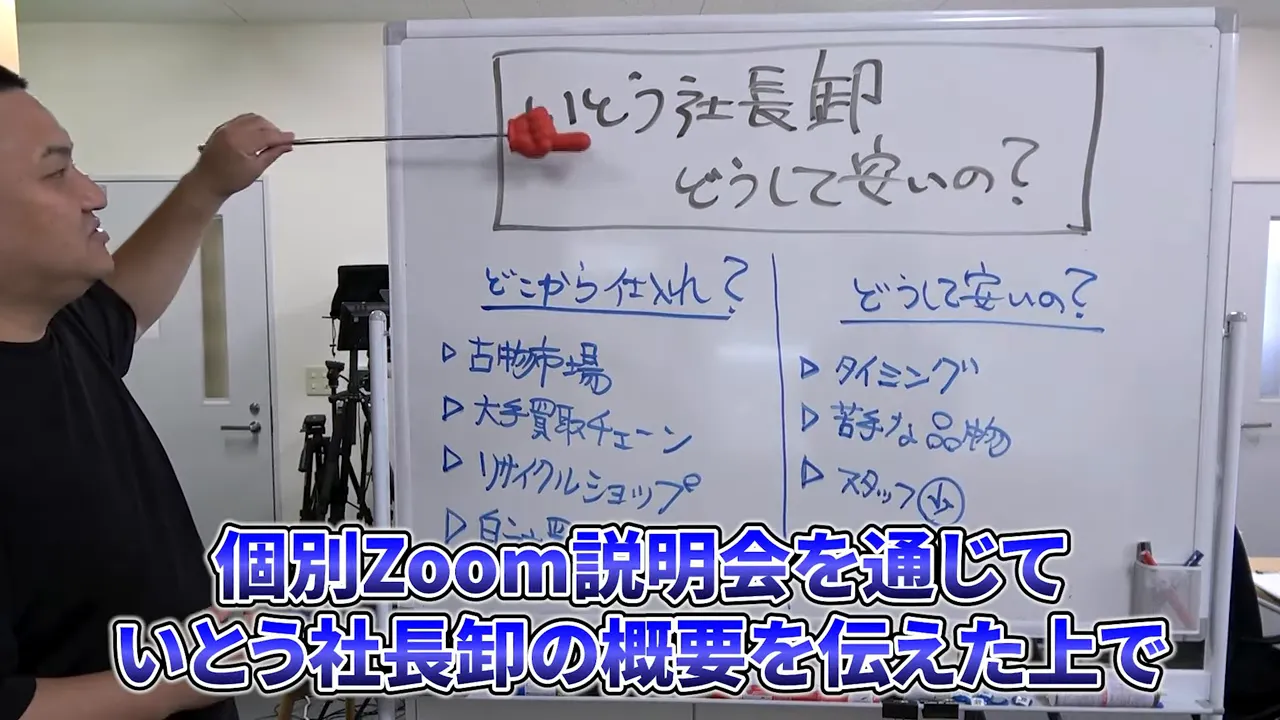 いとう社長卸
どうして安いの?
どこから仕入れ?
▷古物市場
▷大手買取チェーン
▷リサイクルショップ
▷自
どうして安いの?
▷タイミング
▷苦手な品物
▷スタッフ小
個別Zoom説明会を通じて
いとう社長卸の概要を伝えた上で